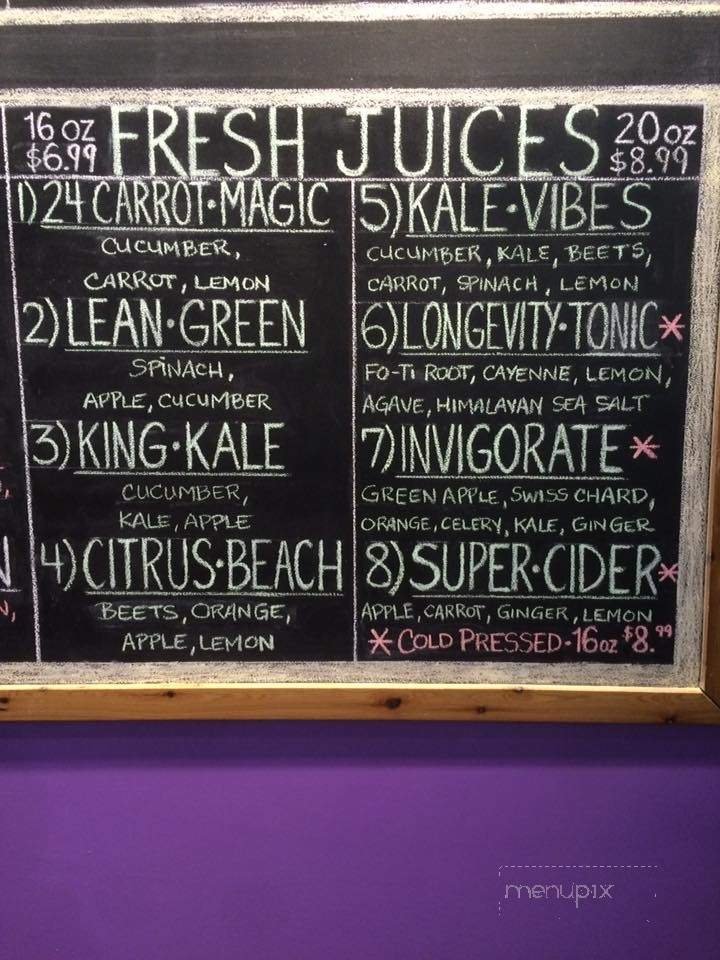 FRESH JUICES
16 oz
$6.99
20 oz
$8.99
1) 24 CARROT·MAGIC
CUCUMBER,
CARROT, LEMON
2) LEAN·GREEN
SPINACH,
APPLE, CUCUMBER
3) KING·KALE
CUCUMBER,
KALE, APPLE
4) CITRUS·BEACH
BEETS, ORANGE,
APPLE, LEMON
5) KALE·VIBES
CUCUMBER, KALE, BEETS,
CARROT, SPINACH, LEMON
6) LONGEVITY·TONIC*
FO-TI ROOT, CAYENNE, LEMON,
AGAVE, HIMALAYAN SEA SALT
7) INVIGORATE*
GREEN APPLE, SWISS CHARD,
ORANGE, CELERY, KALE, GINGER
8) SUPER·CIDER*
APPLE, CARROT, GINGER, LEMON
* COLD PRESSED·16oz $8.99
menupix